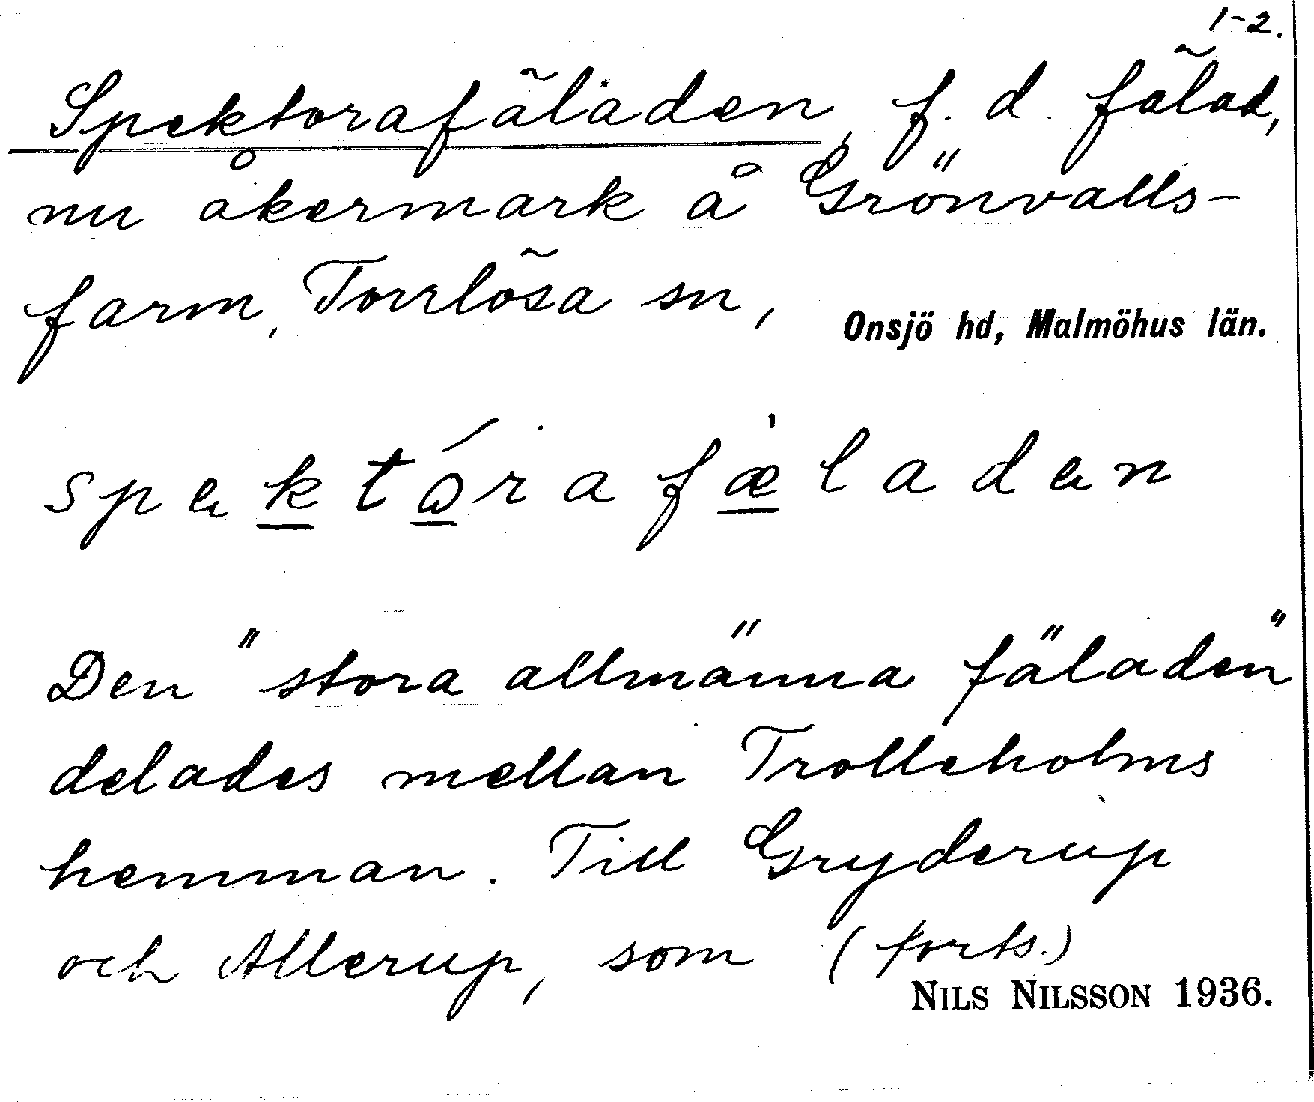 1-2.
Spektorafäladen, f. d. fälad,
nu åkermark å Grönvalls-
farm, Torrlösa sn, Onsjö hd, Malmöhus län.
spektǻrafæ̀laden
Den "stora allmänna fäladen"
delades mellan Trolleholms
hemman. Till Gryderup
och Allerup, som (forts.)
NILS NILSSON 1936.